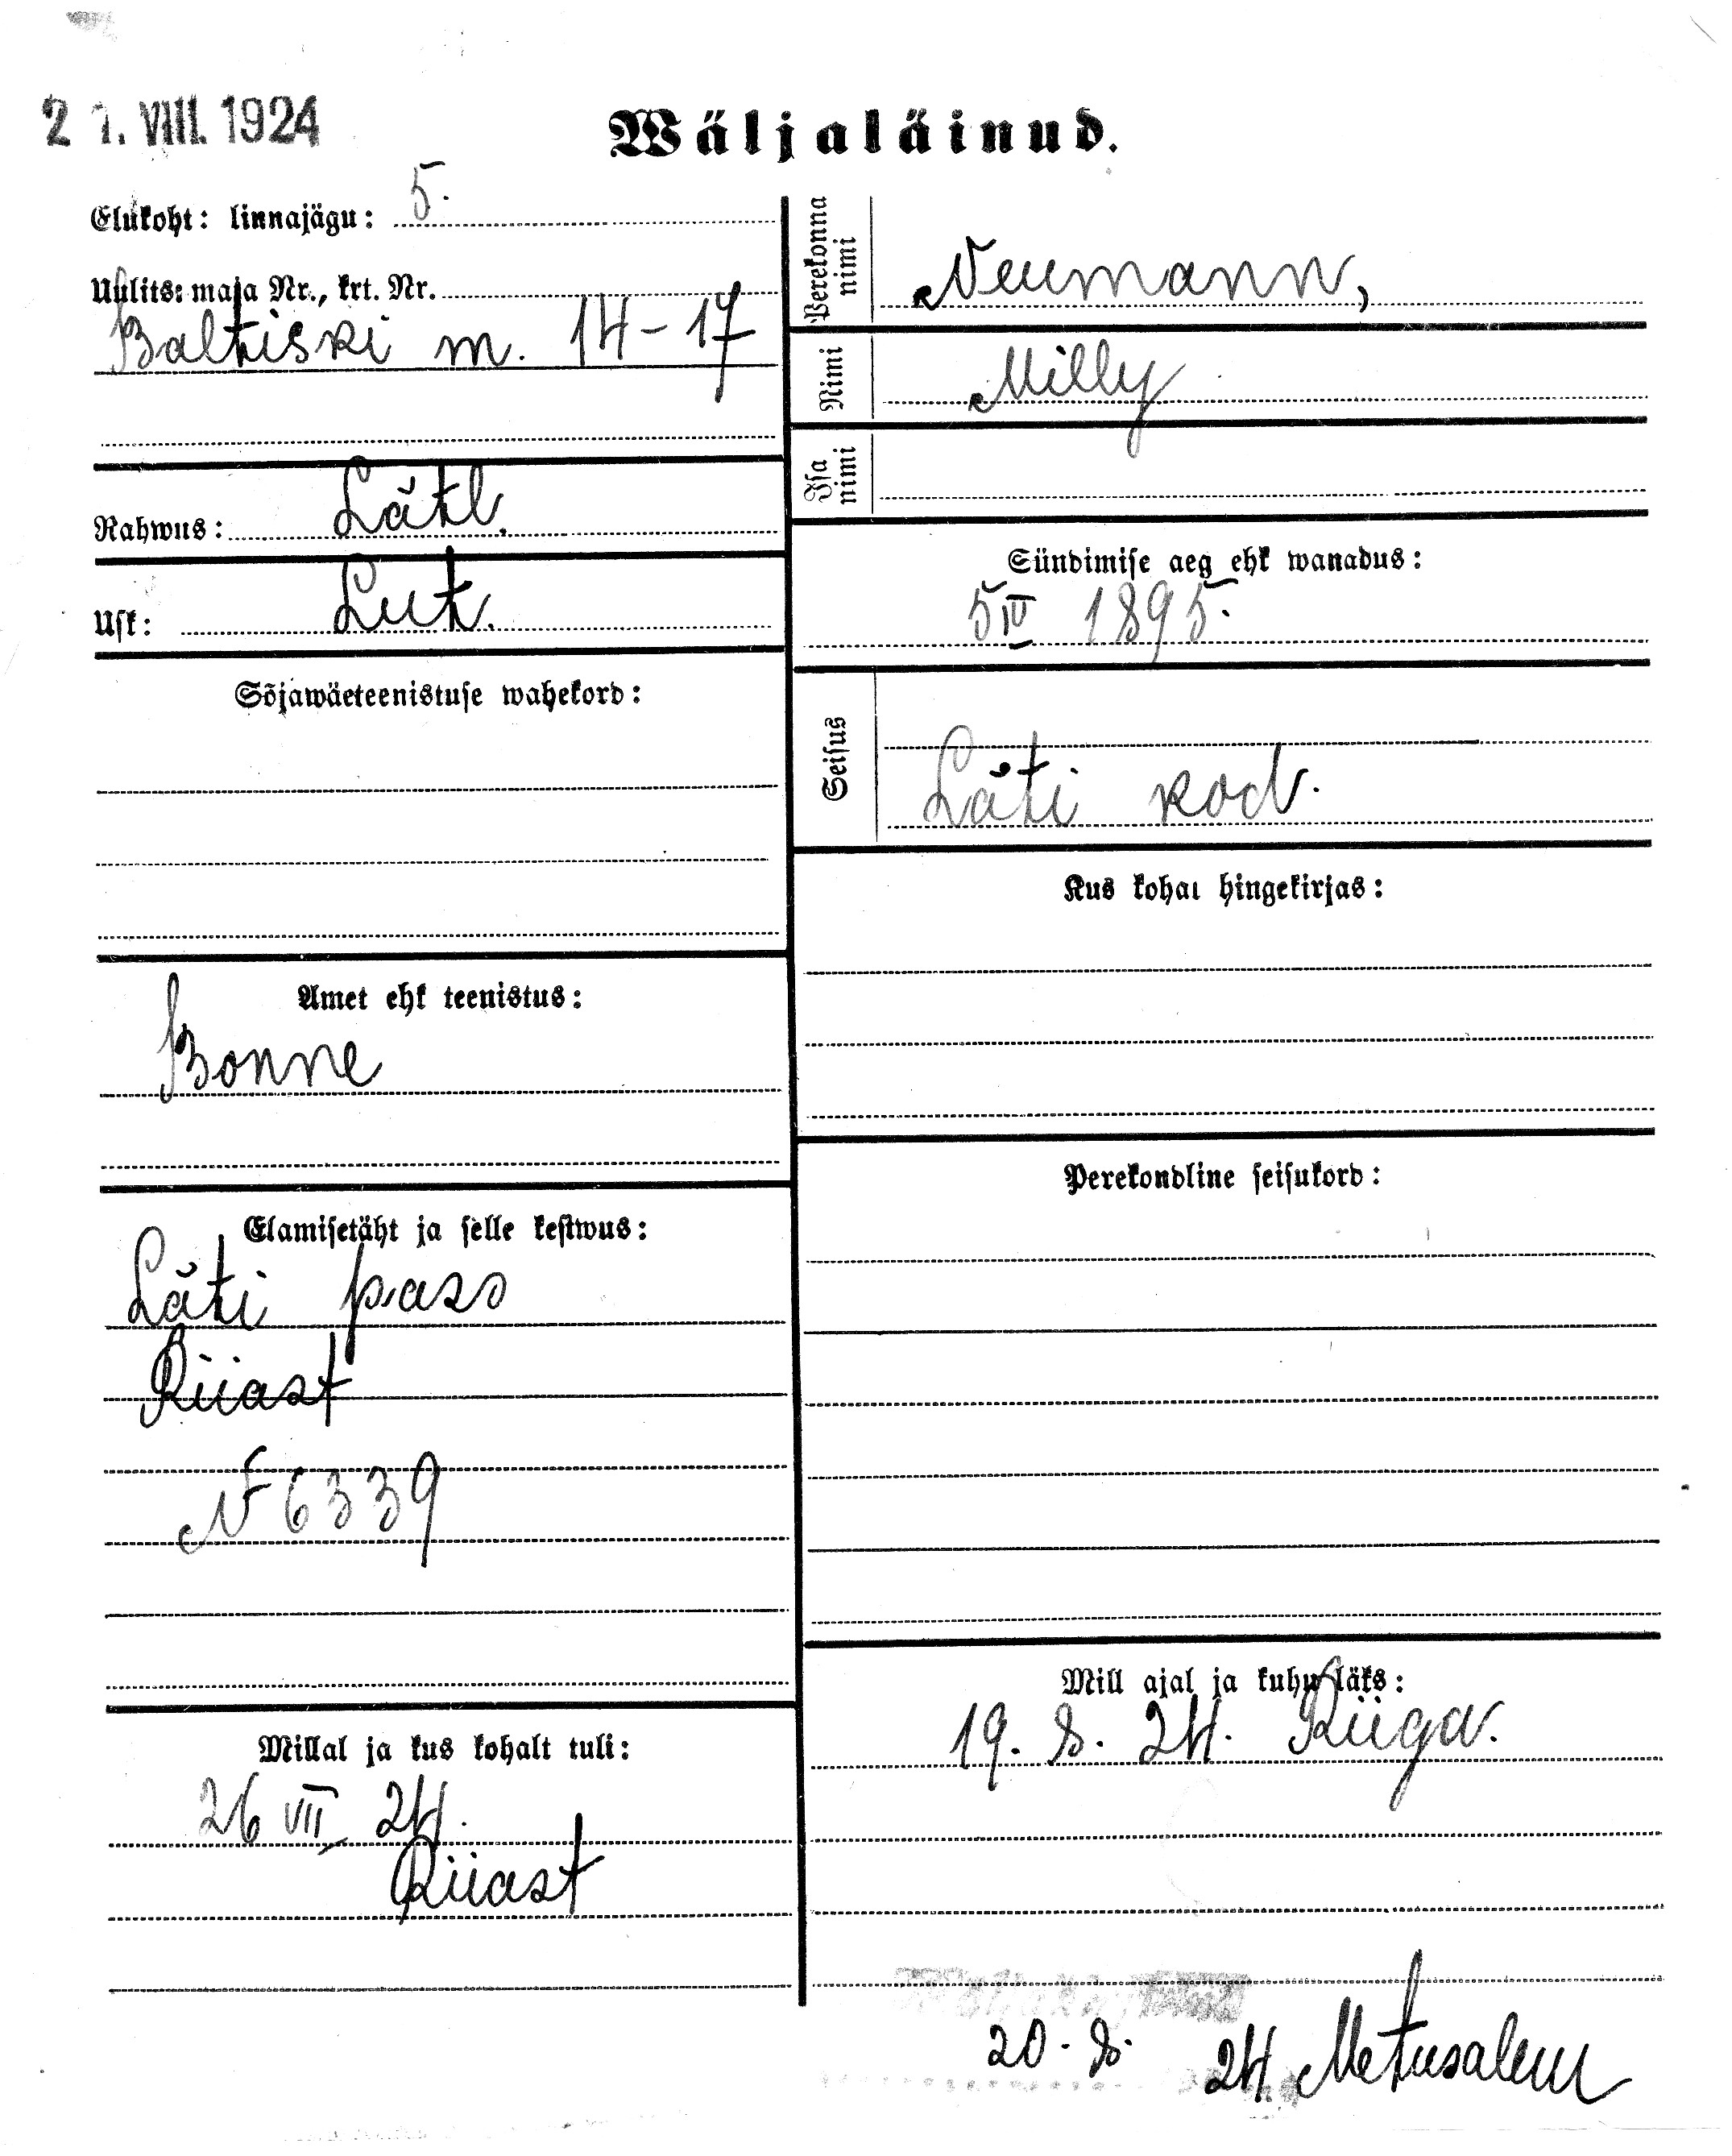 21. VIII. 1924
Wäljaläinud.
Elukoht: linnajägu: 5.
Uulits: maja Nr., krt. Nr.
Baltiski m. 14-17
Rahwus: Lätl.
Usk: Lut.
Sõjawäeteenistuse wahekord:
Amet ehk teenistus:
Bonne
Elamisetäht ja selle kestwus:
Läti pass
Riiast
N 6339
Millal ja kus kohalt tuli:
26 VII 24.
Riiast
Perekonna nimi
Neumann,
Nimi
Milly
Isa nimi
Sündimise aeg ehk wanadus:
5 IV 1895.
Seisus
Läti kod.
Kus kohal hingekirjas:
Perekondline seisukord:
Mill ajal ja kuhu läks:
19. 8. 24. Riiga.
20. 8. 24 Metusalem